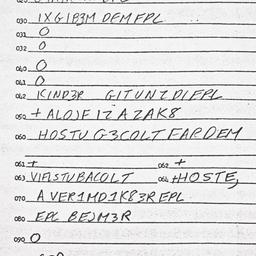 030 IXGIB3M DFMFPL
031 O
032 O
040 O
041 O
042 KIND3R GITUNZDIFPL
050 + ALOJF IZAZAK8
060 HOSTU G3COLT FARDEM
061 + 062 +
063 VIFISTUBACOLT 064 +HOSTE,
070 A VER1MD1K83REPL
080 EPL BEJM3R
090 O